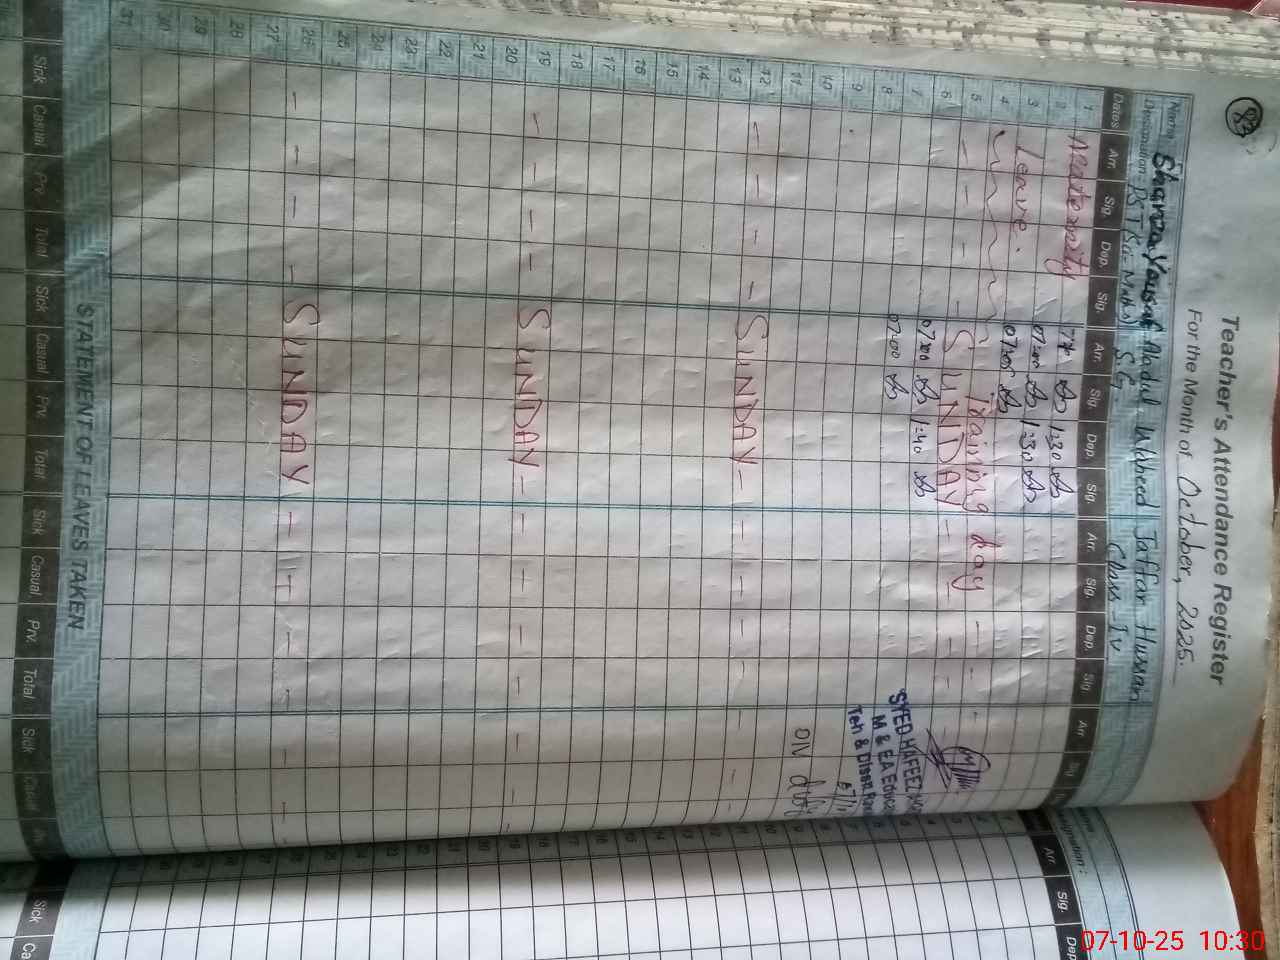 83
Teacher's Attendance Register
For the Month of October, 2025.
Name: Shanza Yousaf Abdul Waheed Jaffar Hussain
Designation: PST S.G Class-IV
Dates Arr. Sig. Dep. Sig. Arr. Sig. Dep. Sig. Arr. Sig. Dep. Sig. Arr Sig
1 Maternity
2 1:30
3 Leave. 07:00 1:30
4 07:05 Training day
5 SUNDAY
6
7 07:00 1:40
8 07:00
9
10
11
12 SUNDAY
13
14
15
16
17
18
19 SUNDAY
20
21
22
23
24
25
26 SUNDAY
27
28
29
30
31
SYED HAFEEZ
M & EA
Teh & Disst
STATEMENT OF LEAVES TAKEN
Sick Casual Prv. Total Sick Casual Prv. Total Sick Casual Prv. Total Sick Casual
Designation:
Arr. Sig. Dep
Sick Ca
07-10-25 10:30